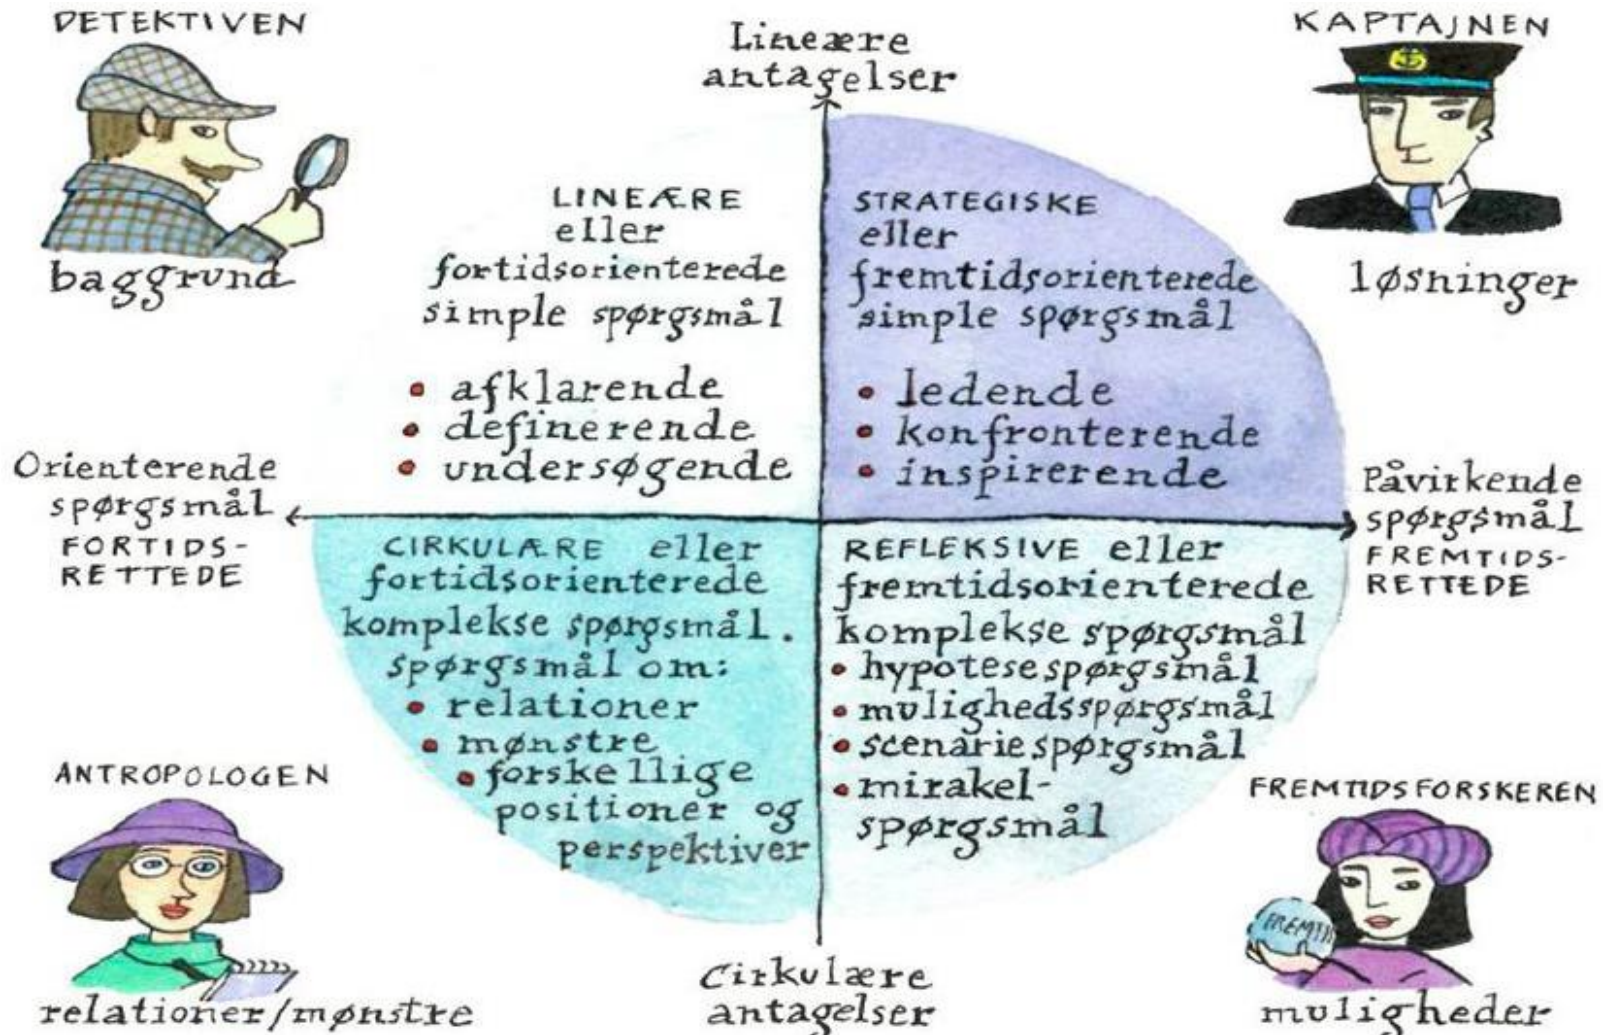 DETEKTIVEN
baggrund
Lineære
antagelser
KAPTAJNEN
løsninger
LINEÆRE
eller
fortidsorienterede
simple spørgsmål
• afklarende
• definerende
• undersøgende
STRATEGISKE
eller
fremtidsorienterede
simple spørgsmål
• ledende
• konfronterende
• inspirerende
Orienterende
spørgsmål
FORTIDS-
RETTEDE
Påvirkende
spørgsmål
FREMTIDS-
RETTEDE
CIRKULÆRE eller
fortidsorienterede
komplekse spørgsmål.
spørgsmål om:
• relationer
• mønstre
• forskellige
positioner og
perspektiver
REFLEKSIVE eller
fremtidsorienterede
komplekse spørgsmål
• hypotesespørgsmål
• mulighedsspørgsmål
• scenariespørgsmål
• mirakel-
spørgsmål
ANTROPOLOGEN
relationer/mønstre
Cirkulære
antagelser
FREMTIDSFORSKEREN
FREMTI
muligheder